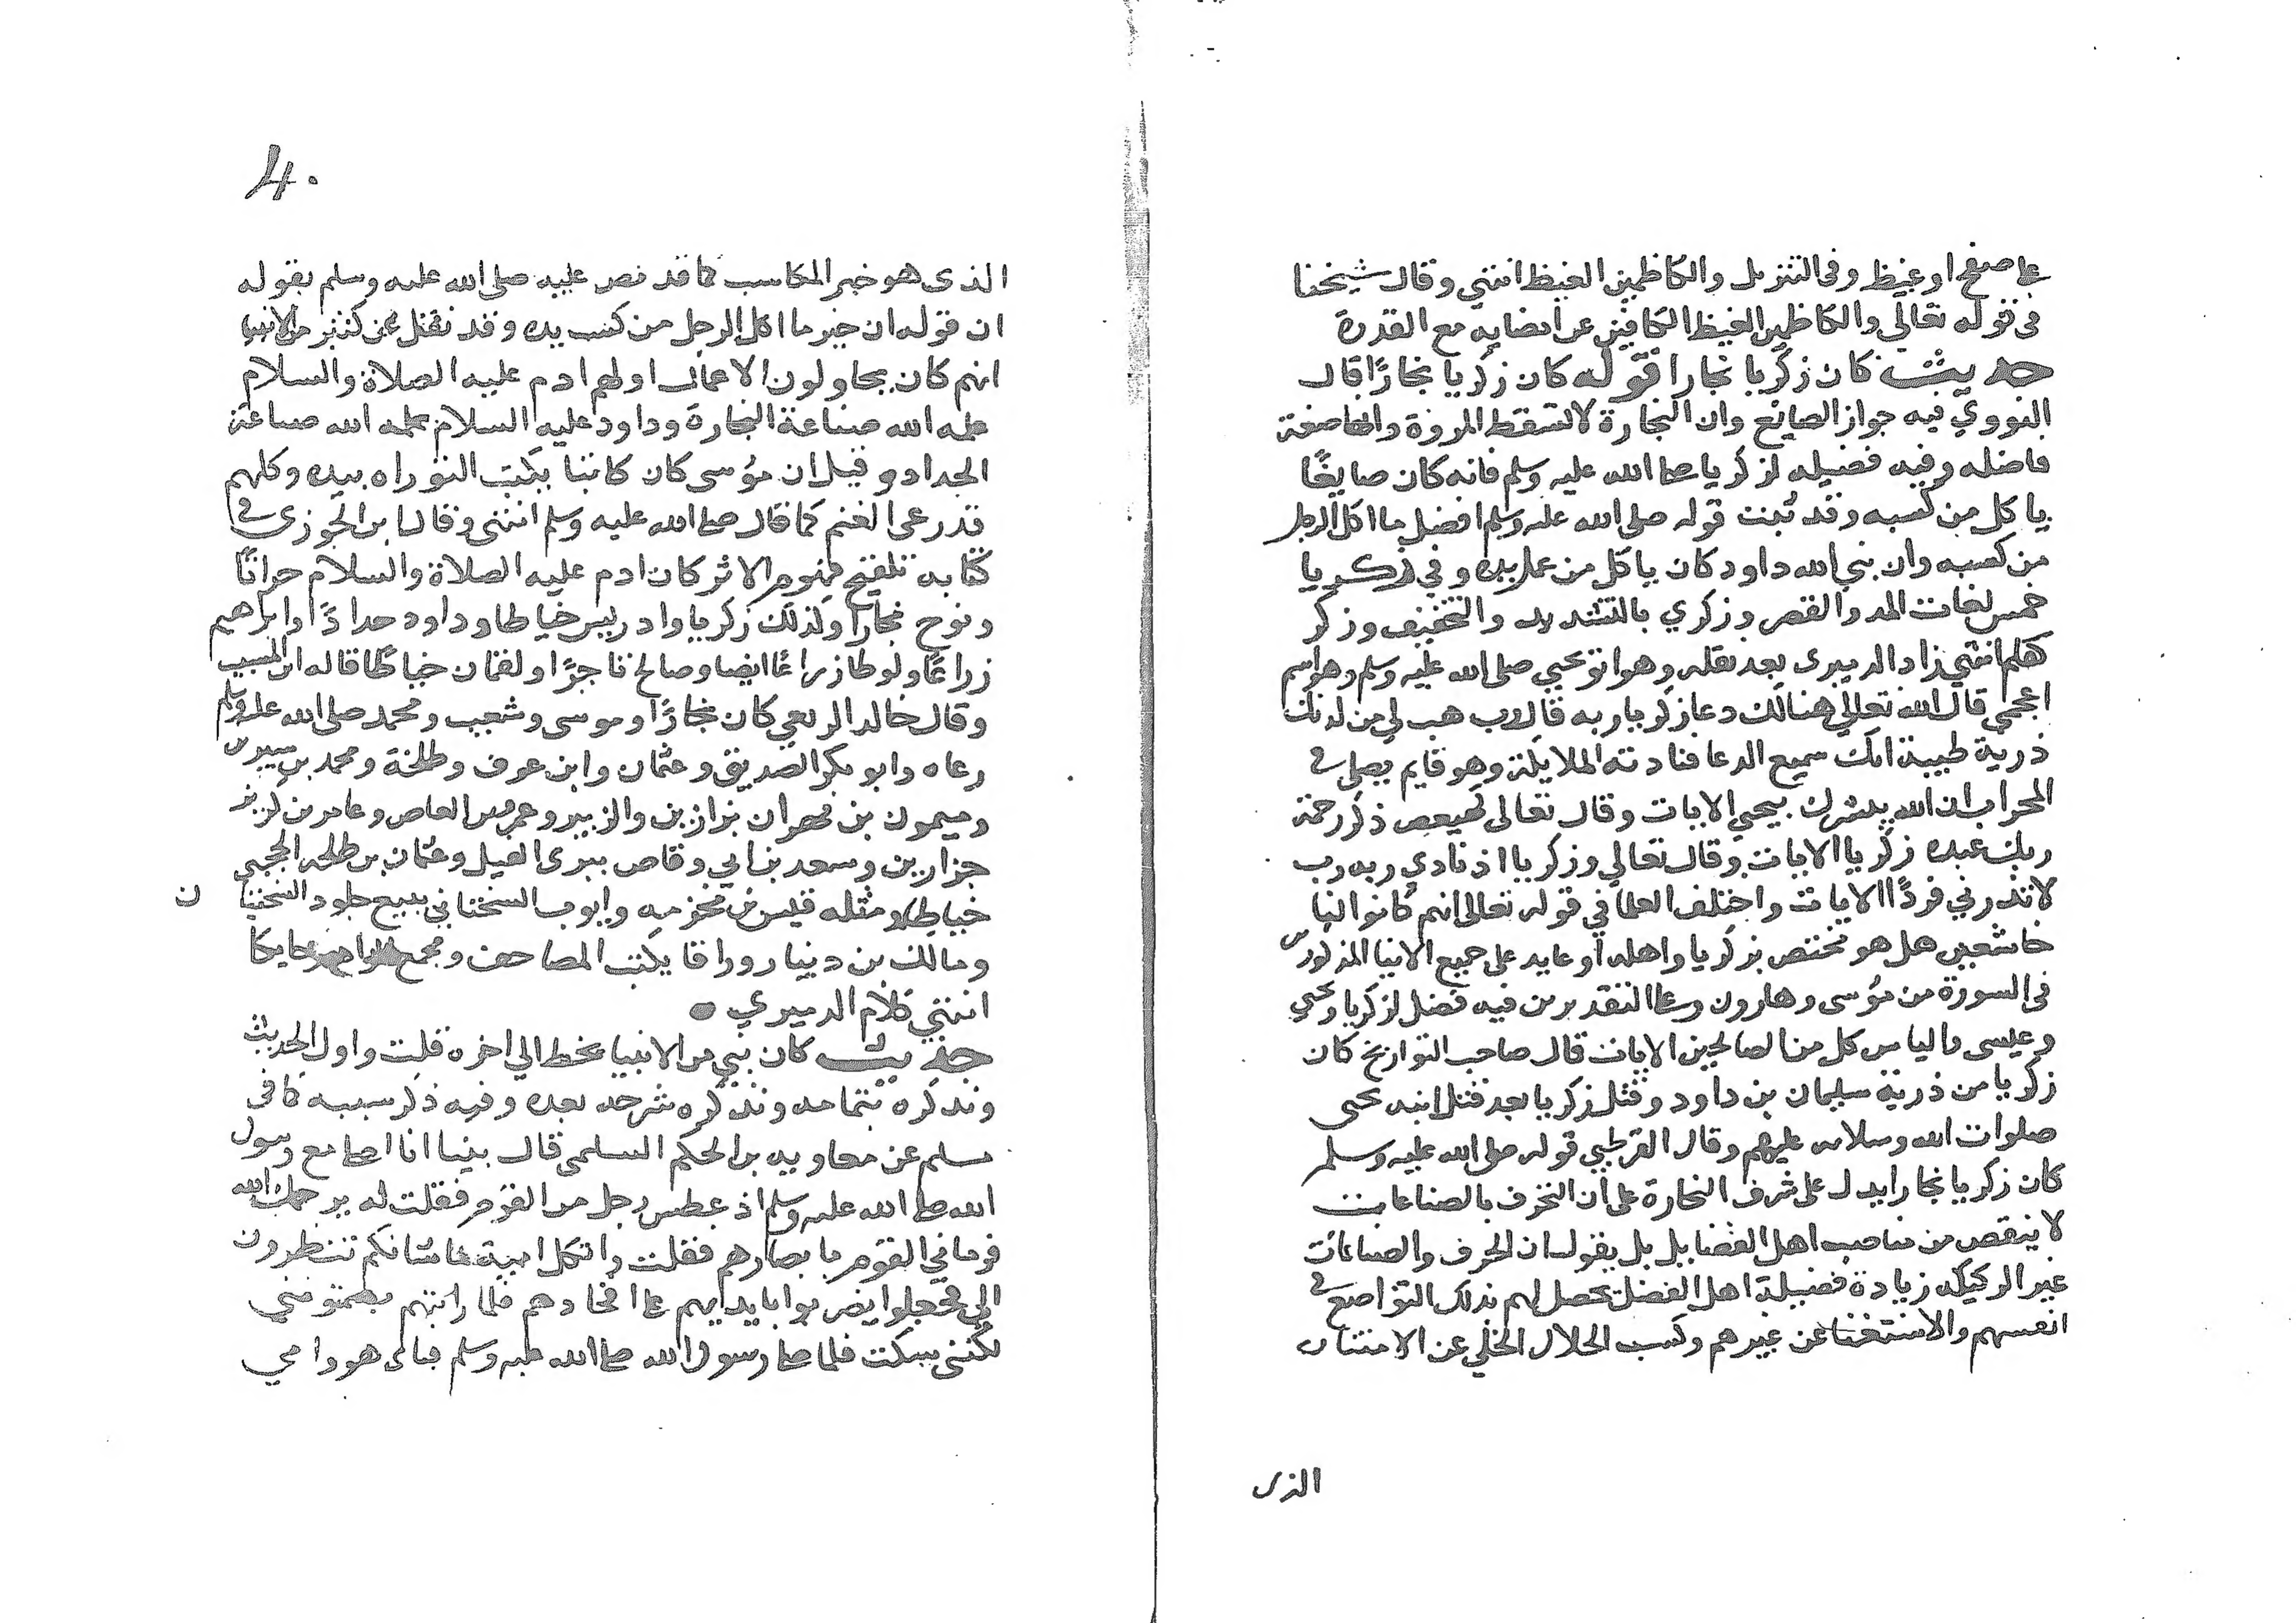 على صفح او غيظ وفى التنزيل والكاظمين الغيظ انتهي وقال شيخنا
فى قوله تعالي والكاظمين الغيظ الكافين عن امضايه مع القدرة
حديث كان زكريا نجارا قوله كان زكريا نجارًا قال
النووي فيه جواز الصنايع وان النجارة لا تسقط المروة وانها صنعة
فاضله وفيه فضيله لزكريا صلى الله عليه وسلم فانه كان صايغًا
ياكل من كسبه وقد ثبت قوله صلى الله عليه وسلم افضل ما اكل الرجل
من كسبه وان نبي الله داود كان ياكل من عمل يده وفي زكريا
خمس لغات المد والقصر وزكري بالتشديد والتخفيف وزكر
كعلم انتهي زاد الدميرى بعد نقله وهو ابو يحيي صلى الله عليه وسلم وهو اسم
اعجمي قال الله تعالي هنالك دعا زكريا ربه قال رب هب لي من لدنك
ذرية طيبة انك سميع الدعا فنادته الملايكة وهو قايم يصلى في
المحراب ان الله يبشرك بيحيي الايات وقال تعالى كهيعص ذكر رحمة
ربك عبده زكريا الايات وقال تعالي وزكريا اذ نادي ربه رب
لا تذرني فردًا الايات واختلف العلما في قوله تعالى انهم كانوا لنا
خاشعين هل هو مختص بزكريا واهله او عايد على جميع الانبيا المذكورين
فى السورة من موسى وهارون وعلى التقدير من فيه فضل لزكريا ويحيي
وعيسى والياس كل من الصالحين الايات قال صاحب التواريخ كان
زكريا من ذرية سليمان بن داود وقتل زكريا بعد قتل ابنه يحيى
صلوات الله وسلامه عليهم وقال القرطبي قوله صلى الله عليه وسلم
كان زكريا نجارا يدل على شرف النجارة على ان التحرف بالصناعات
لا ينقص من مناصب اهل الفضايل بل يقول ان الحرف والصناعات
غير الركيكه زيادة فضيلة اهل الفضل يحصل لهم بذلك التواضع في
انفسهم والاستغنا عن غيرهم وكسب الحلال الخلي عن الامتنان
الذى
4.
الذى هو خير المكاسب كما قد نص عليه صلى الله عليه وسلم بقوله
ان قوله ان خير ما اكل الرجل من كسب يده وقد نقل عن كثير من الانبيا
انهم كان يحاولون الاعمال اولهم ادم عليه الصلاة والسلام
علمه الله صناعة النجارة وداود عليه السلام علمه الله صناعة
الحدادو وقيل ان موسى كان كاتبا يكتب التوراه بيده وكلهم
قد رعى الغنم كما قال صلى الله عليه وسلم انتهى وقال ابن الجوزى في
كتابه تلقيح فهوم الاثر كان ادم عليه الصلاة والسلام حراثًا
ونوح نجارا وكذلك زكريا وادريس خياطا وداود حدادًا وابراهيم
زراعًا ولوطا زراعًا ايضا وصالح تاجرًا ولقمان خياطًا قاله ابن المسيب
وقال خالد الربعي كان نجارًا وموسى وشعيب ومحمد صلى الله عليه وسلم
رعاه وابو بكر الصديق وعثمان وابن عوف وطلحة ومحمد بن سيرين
وميمون بن مهران بزازين والزبير وعمرو بن العاص وعامر بن كريز
جزارين وسعد بن ابي وقاص يبرى النبل وعثمان بن طلحه الحجبى
خياطا ومثله قيس بن مخزمه وايوب السختياني يبيع جلود السختيا ن
ومالك بن دينار وراقا يكتب المصاحف ومجمع حايكا
انتهي كلام الدميري
حديث كان نبي من الانبيا يخط الي اخره قلت واول الحديث
ونذكره بتمامه ونذكره شرحه بعده وفيه ذكر سببه كما فى
مسلم عن معاويه بن الحكم السلمى قال بينا انا اصلى مع رسول
الله صلى الله عليه وسلم اذ عطس رجل من القوم فقلت له يرحمك الله
فرماني القوم بابصارهم فقلت واثكل امية ما شانكم تنظرون
الى فجعلوا يضربوا بايديهم على افخادهم فلما رايتهم يصمتونني
لكننى سكت فلما صلى رسول الله صلى الله عليه وسلم فبابى هو وامي